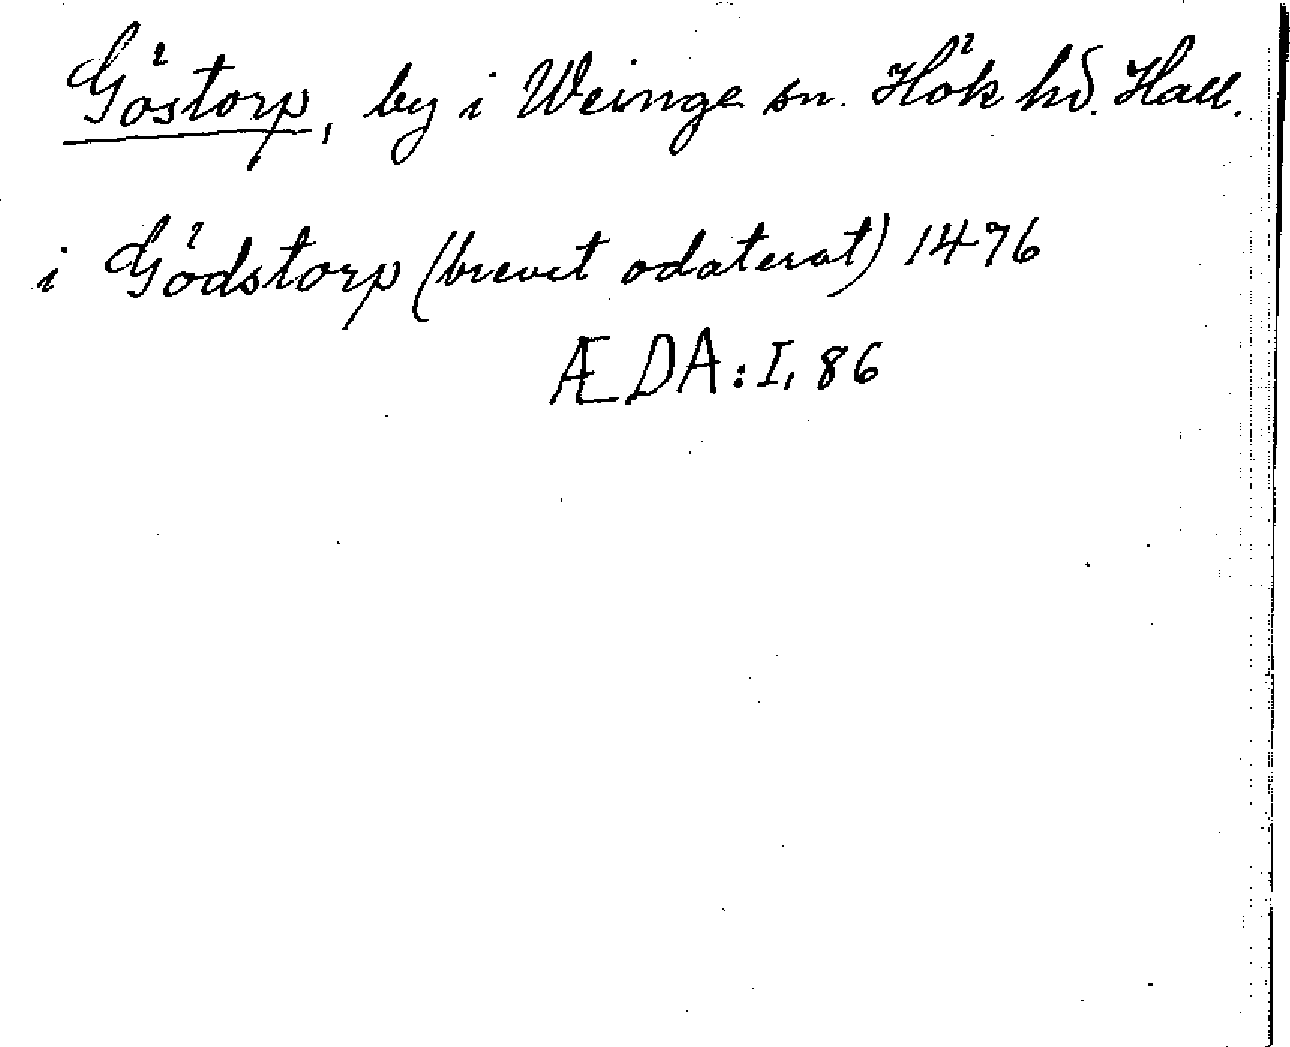 Göstorp, by i Weinge sn. Hök hd. Hall.
i Gödstorp (brevet odaterat) 1476
ÆDA: I, 86